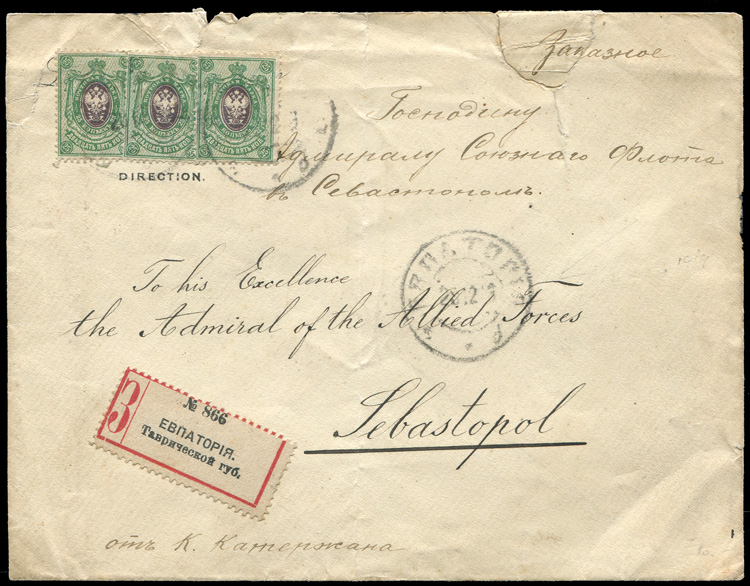 Заказное
Господину
Адмиралу Союзнаго Флота
въ Севастополь.
DIRECTION.
ЕВПАТОРІЯ
To his Excellence
the Admiral of the Allied Forces
Sebastopol
З
№ 866
ЕВПАТОРІЯ.
Таврической губ.
отъ К. Катержана